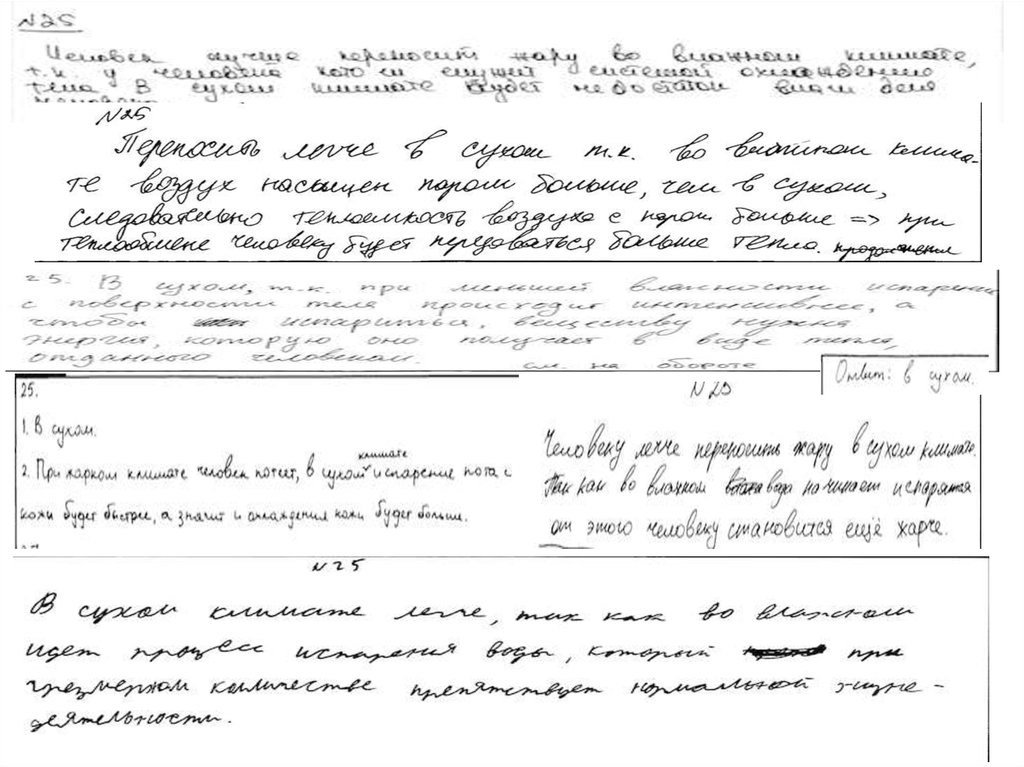 N25
Человек лучше переносит жару во влажном климате,
т.к. у человека системой охлаждения
тела в сухом климате будет недостаток влаги
N25
Переносить легче в сухом т.к. во влажном клима-
те воздух насыщен паром больше, чем в сухом,
следовательно теплоемкость воздуха с паром больше => при
теплообмене человеку будет передоваться больше тепла.
25. В сухом, т.к. при меньшей влажности испарение
с поверхности тела происходит интенсивнее, а
чтобы испариться, веществу нужна
энергия, которую оно получает в виде тепла,
отданного человеком. см. на обороте
Ответ: в сухом.
25.
1. В сухом.
2. При жарком климате человек потеет, в сухом климате испарение пота с
кожи будет быстрее, а значит и охлаждения кожи будет больше.
N25
Человеку легче переносить жару в сухом климате.
Так как во влажном вода начинает испарятся
от этого человеку становится ещё жарче.
N25
В сухом климате легче, так как во влажном
идет процесс испарения воды, который при
чрезмерном колличестве препятствует нормальной жизне-
деятельности.